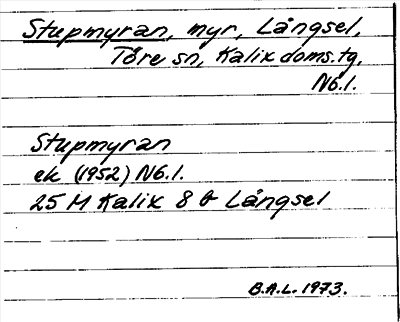 Stupmyran, myr, Långsel,
Töre sn, Kalix doms.tg.
Nb.l.
Stupmyran
ek (1952) Nb.l.
25 M Kalix 8 b Långsel
B.A.L. 1973.